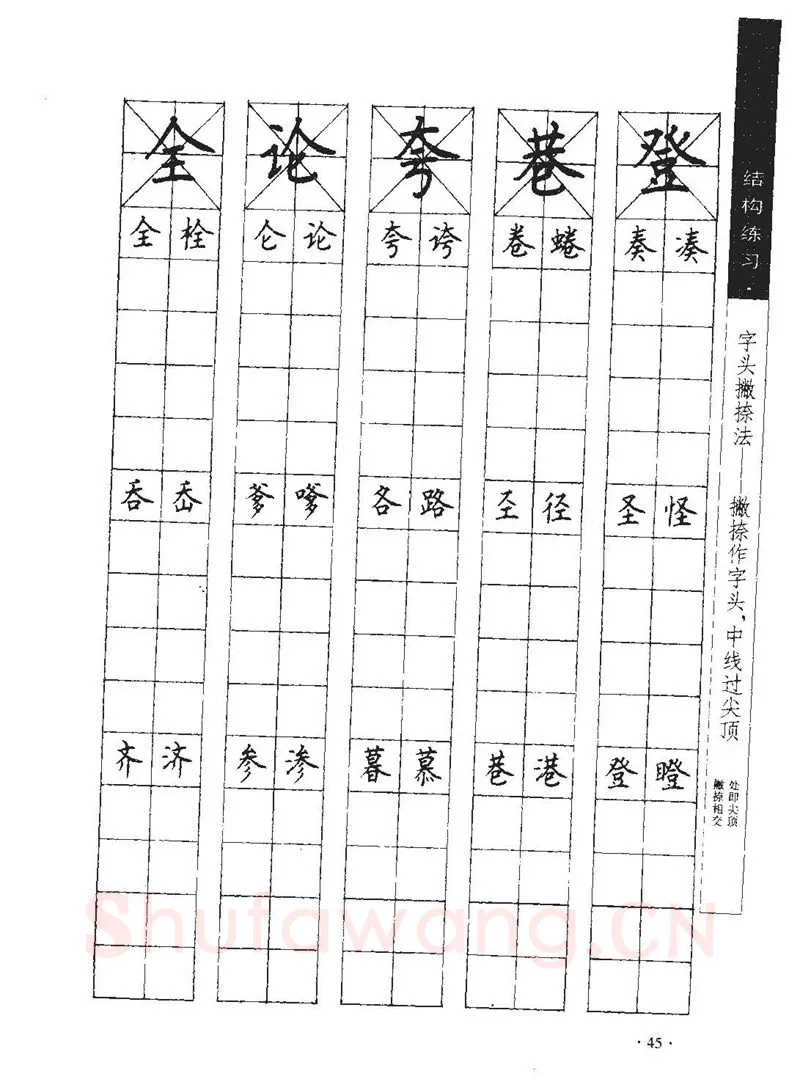 结构练习·
字头撇捺法——撇捺作字头，中线过尖顶
撇捺相交
处即尖顶
全 论 夸 巷 登
全 栓 仑 论 夸 卷 蜷 奏 凑
吞 岙 爹 嗲 各 路 径 圣 怪
齐 济 参 渗 暮 慕 巷 港 登 瞪
Shufawang.CN
·45·